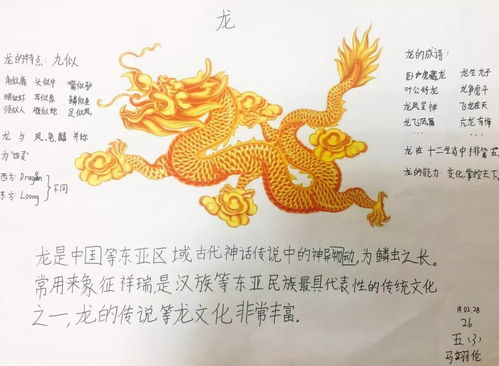 龙
龙的特点：九似
角似鹿 头似牛 嘴似驴
眼似虾 耳似象 鳞似鱼
须似人 腹似蛇 足似凤
龙与凤、龟、麟并称
为"四灵"
西方：Dragon
东方：Loong
不同
龙的成语：
卧虎藏龙 龙生九子
叶公好龙 龙争虎斗
龙凤呈祥 飞龙在天
龙飞凤舞 亢龙有悔
龙在十二生肖中排第五
龙的能力：变化，掌控天下
龙是中国等东亚区域古代神话传说中的神异动物，为鳞虫之长。
常用来象征祥瑞，是汉族等东亚民族最具代表性的传统文化
之一，龙的传说等龙文化非常丰富.
02.28
26
五(3)